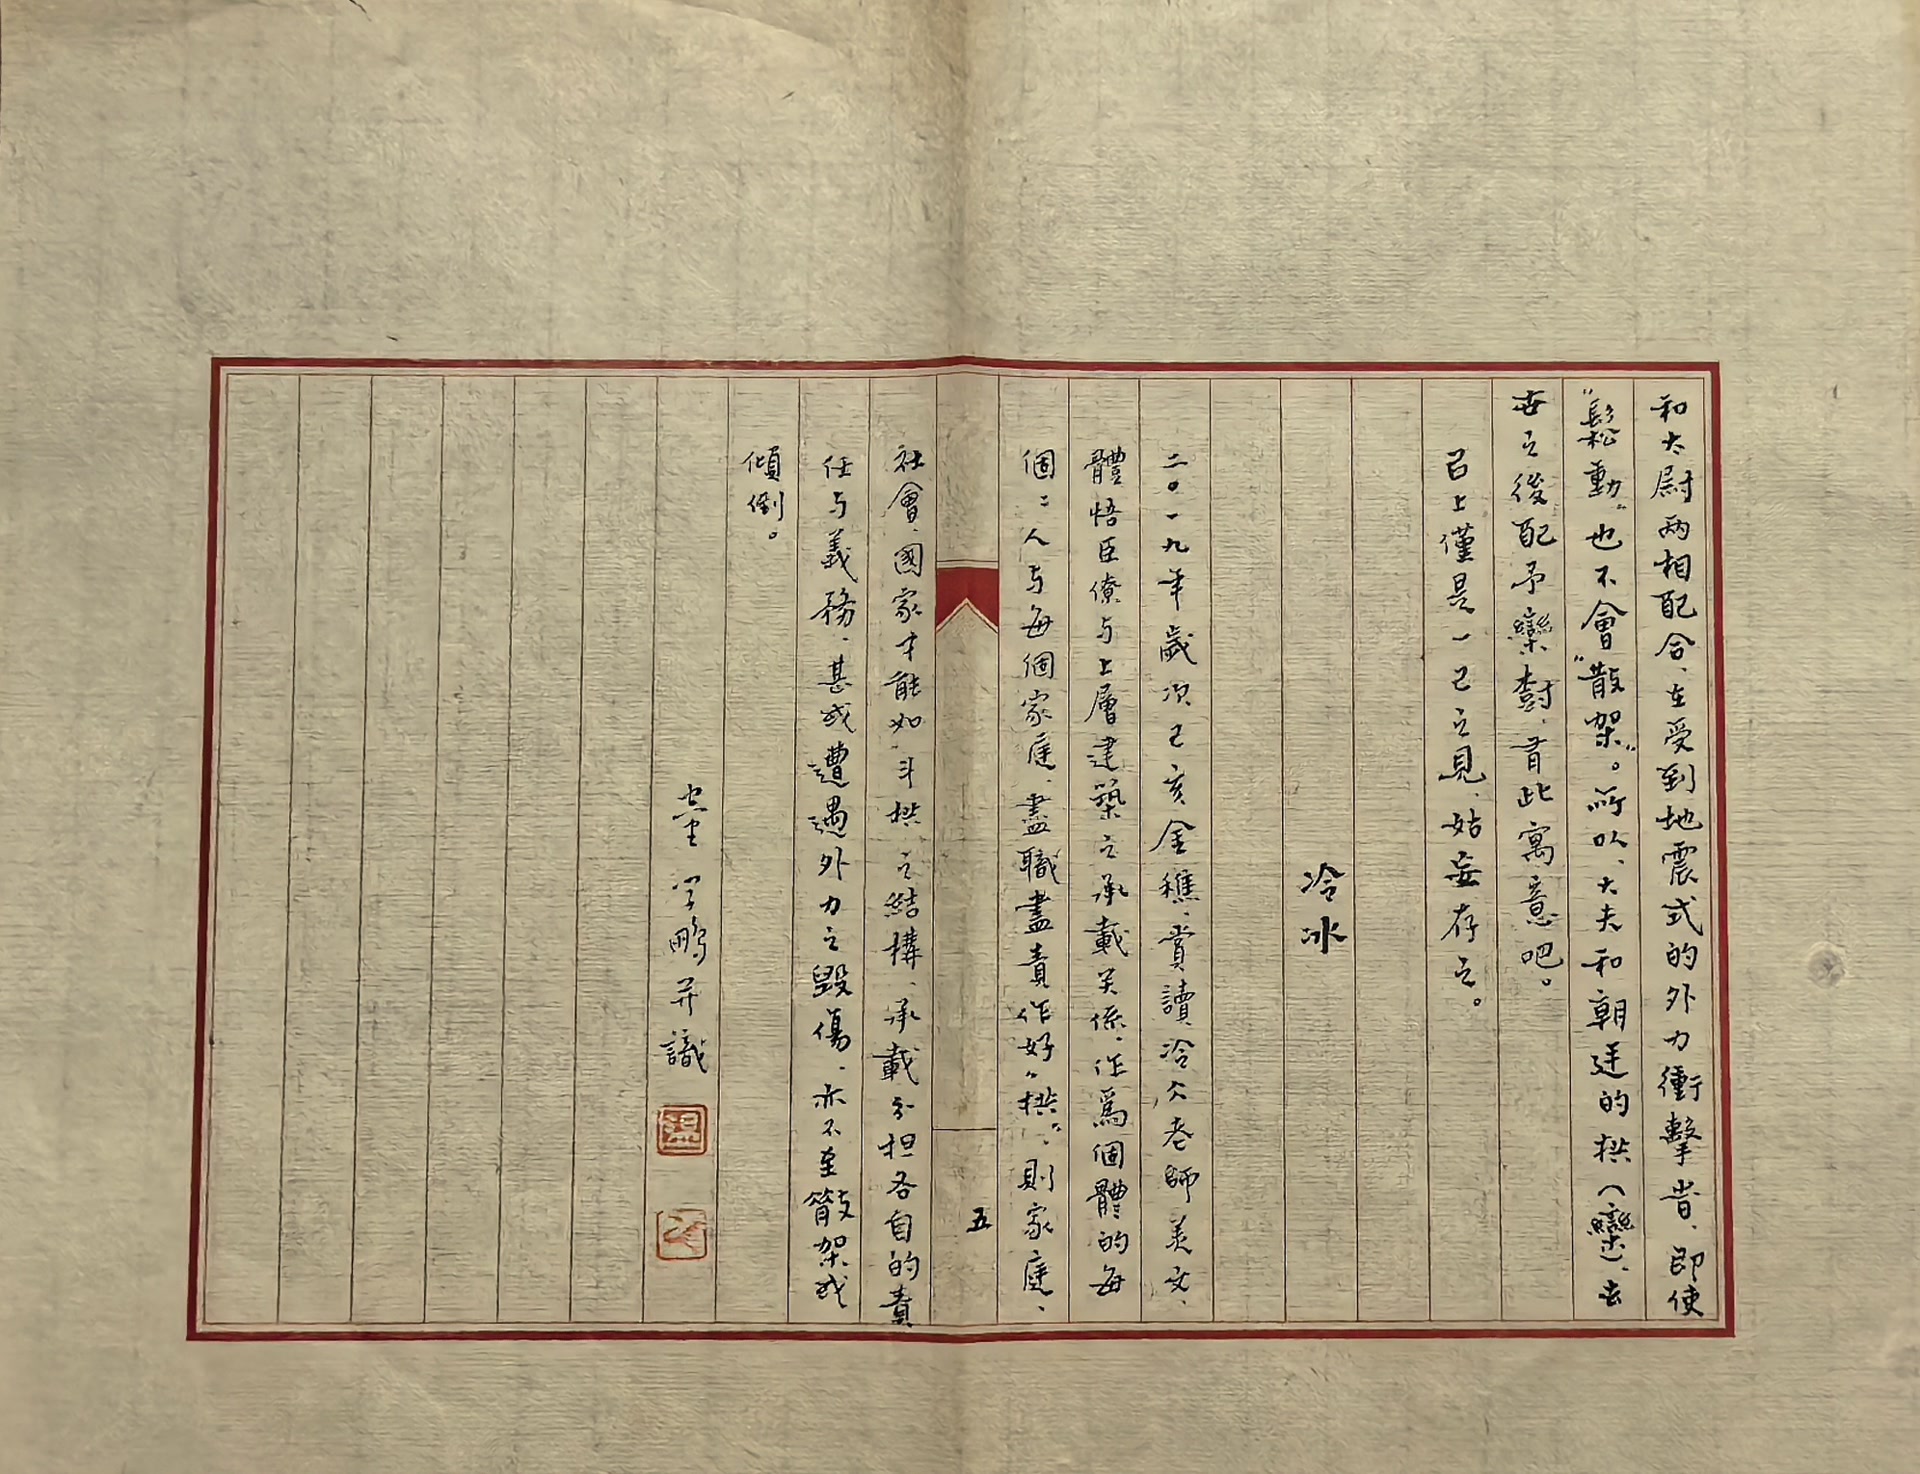 和太尉两相配合、在受到地震式的外力衝擊旹、即使
"鬆動"也不會"散架"。所以、大夫和朝廷的栱（欒）、去
世之後配予欒樹、此寓意吧。
㠯上僅是一己之見、姑妄存之。
冷冰
二〇一九年歲次己亥金穐、賞讀冷仌老師美文、
體悟臣僚与上層建築之承載关係、作爲個體的每
個〻人与每個家庭、盡職盡責作好"栱"、則家庭、
五
社會、國家才能如斗栱之結構、承載分担各自的責
任与義務、甚或遭遇外力之毀傷、亦不至散架或
傾倒。
学鵬并識